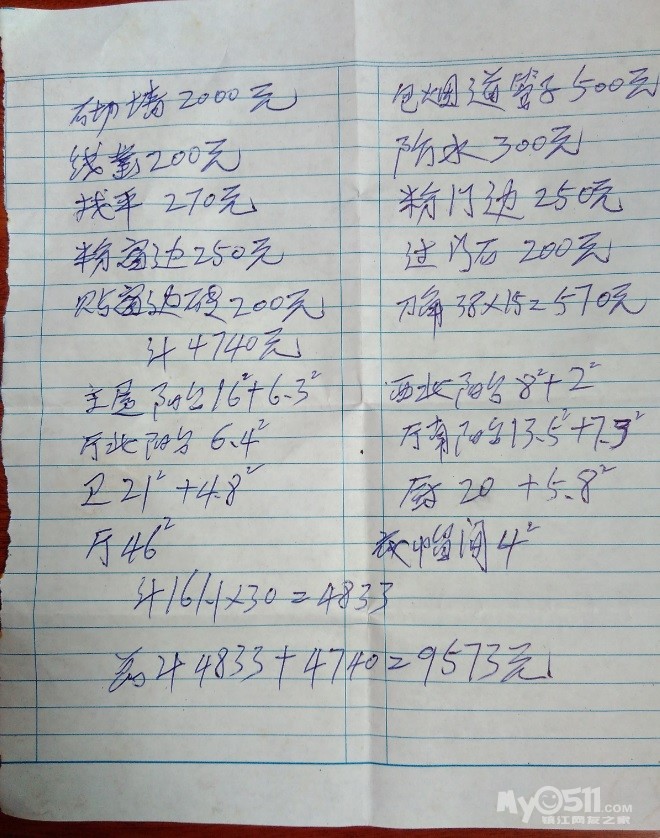 砌墙 2000元 包烟道管子 500元
线管 200元 防水 300元
找平 270元 粉门边 250元
粉窗边 250元 过门石 200元
贴窗边砖 200元 刀角 38×15=570元
计 4740元
主屋阳台 16²+6.3² 西北阳台 8²+2²
厅北阳台 6.4² 厅南阳台 13.5²+7.3²
卫 21²+4.8² 厨 20 +5.8²
厅 46² 衣帽间 4²
计 161.1×30=4833
计 4833+4740=9573元
My0511.COM
镇江网友之家